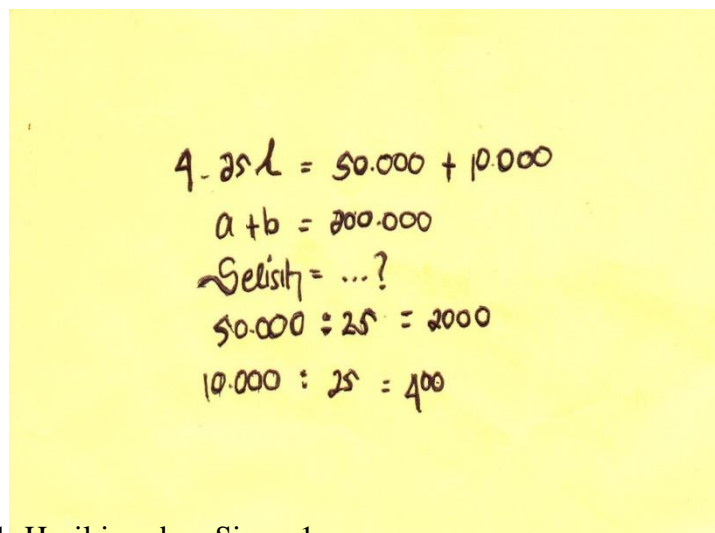 4. 25 l = 50.000 + 10.000
a + b = 200.000
Selisih = ...?
50.000 : 25 = 2000
10.000 : 25 = 400